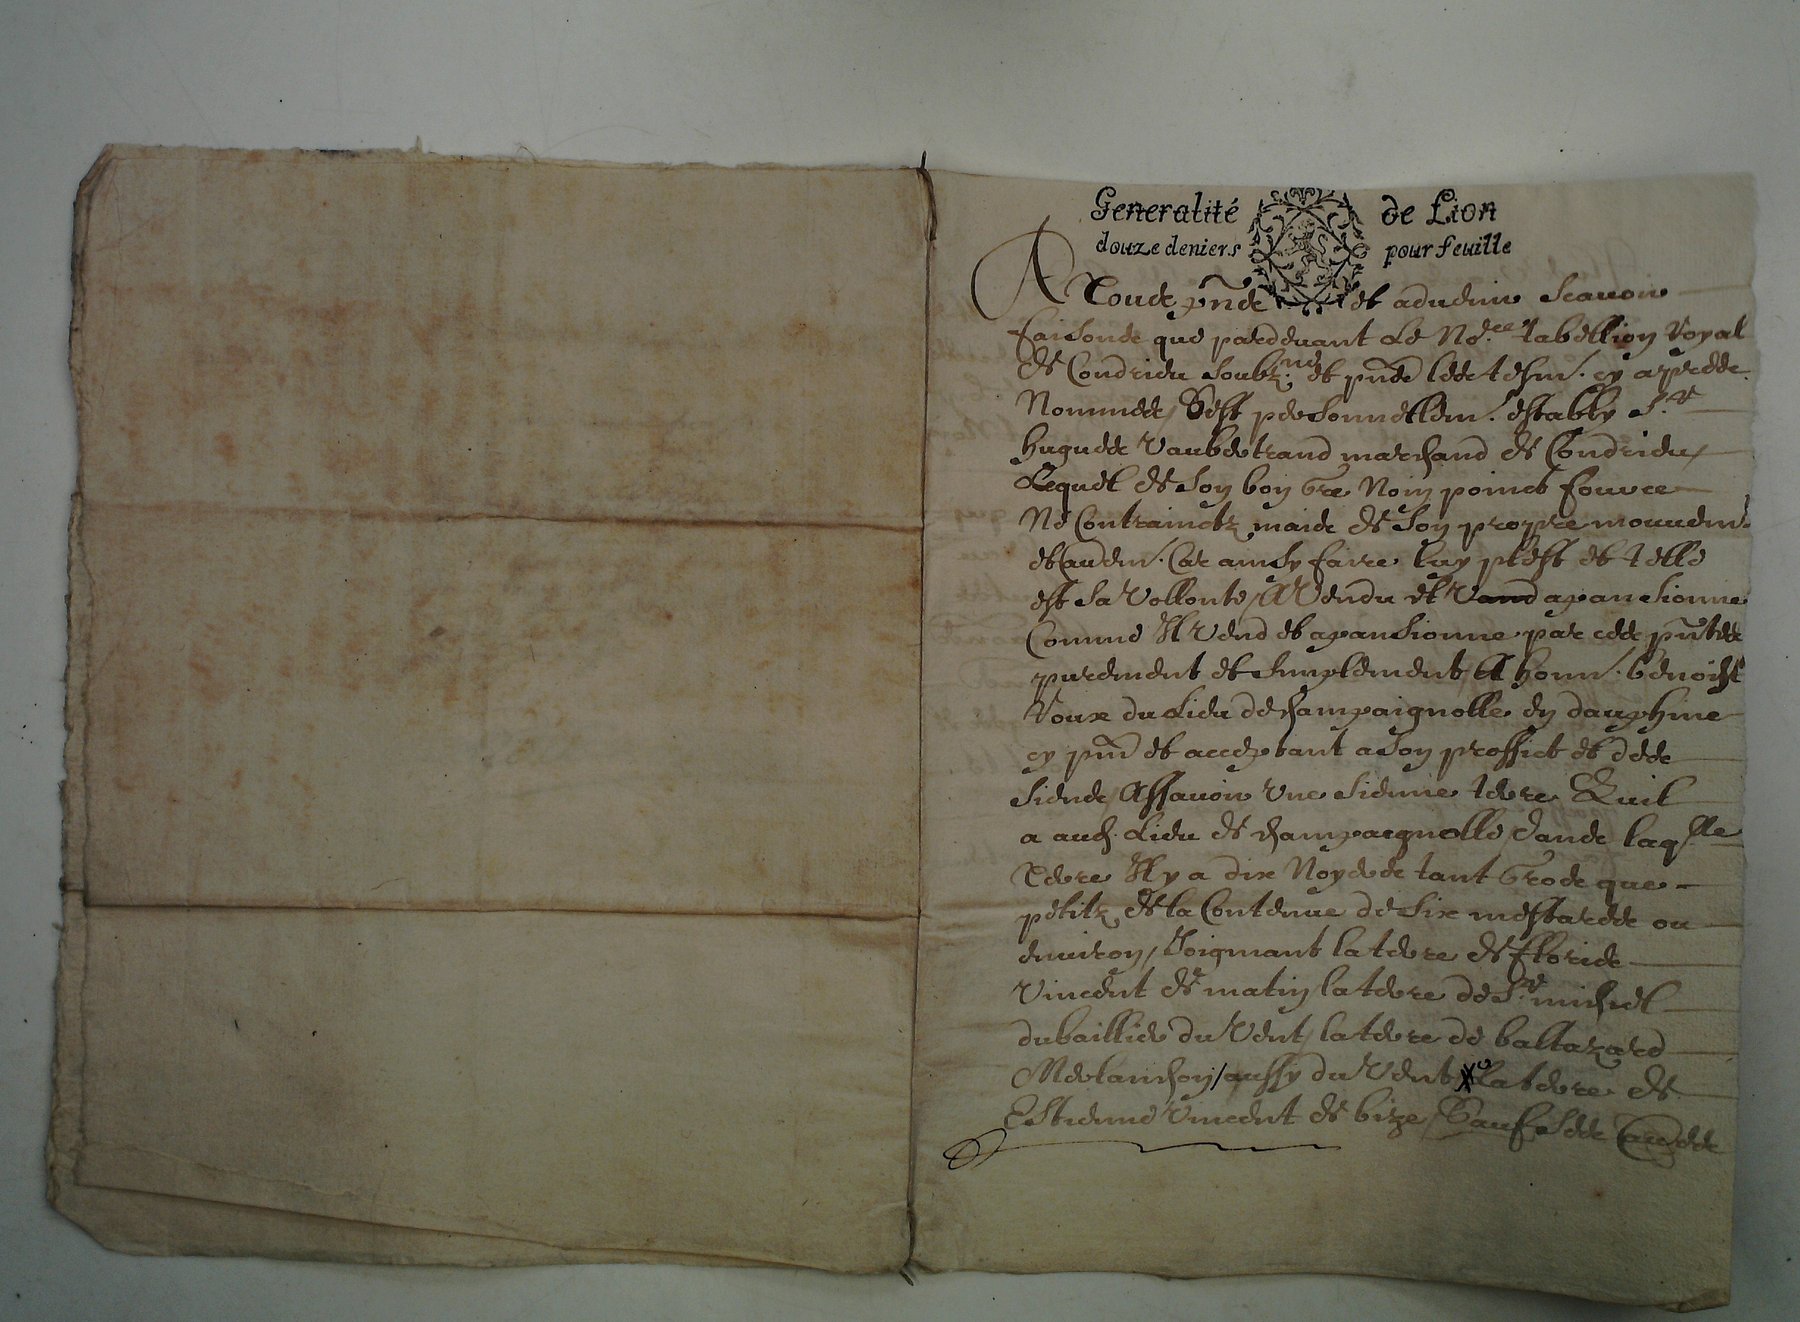 Generalité de Lion
douze deniers pour feuille
A Tous pñs et advenir scavoir
faisons que pardevant Le No.re tabellion Royal
de Condrieu soubz.né et pñs les tesm. cy apres
Nommes, s'est personnellem. estably S.r
hugues Vaubertrand marchand de Condrieu,
Lequel de son bon gre Non poinct fource
Ne Contrainctz mais de son propre mouvem.
Car ainsy faire luy plest et telle
est sa vollonte, A Vendu et Vand apansionne
Comme Il Vend et apansionne par ces pñtes
purement et simplement, A honn. benoist
Roux du Lieu de champaignolle en dauphine
cy pñt et acceptant a son proffict et des
siens, Assavoir Une sienne terre Quil
a aud. Lieu de champaignolle, dans laq.lle
Terre Il y a dix Noyers tant Gros que
petitz de la Contenue de six mestardes ou
environ, Joignant la terre de floris
Vincent de matin la terre de S.r michel
dubaillier du Vent, la terre de baltazard
Merlanchon, aussy du Vent La terre de
Estienne Vincent de bize, Sauf ses